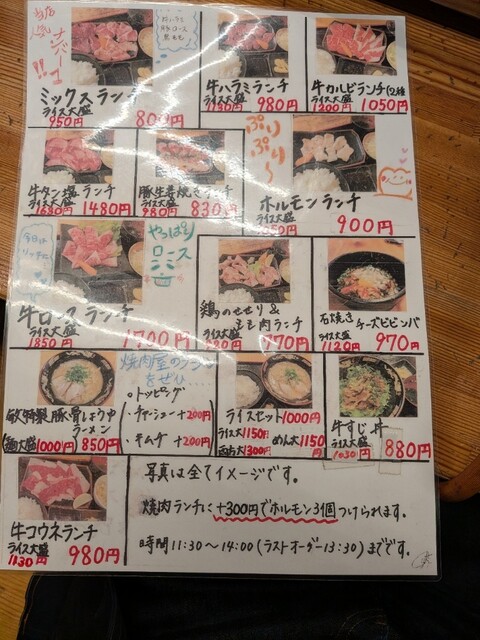 当店
人気
ナンバー1
!!
ミックスランチ
ライス大盛
950円
800円
牛ハラミランチ
ライス大盛
1130円 980円
牛カルビランチ(2種
ライス大盛
1200円 1050円
牛タン塩ランチ
ライス大盛
1630円 1480円
豚生姜焼きランチ
ライス大盛
980円 830円
ぷり
ぷり〜
ホルモンランチ
ライス大盛
900円
やっぱり
牛ロースランチ
ライス大盛
1850円
1700円
鶏のせせり&
もも肉ランチ
ライス大盛
770円
石焼き
チーズビビンバ
ライス大盛
1120円 970円
特製豚骨しょうゆ
ラーメン
麺大盛 1000円 850円
焼肉屋の
をぜひ...
○トッピング
・チャーシュー+200円
・キムチ +200円
ライスセット1000円
ライス大1150円 めん大1150円
両方大1300円
牛すじ丼
ライス大盛
1030円
880円
牛コウネランチ
ライス大盛
1130円 980円
写真は全てイメージです。
焼肉ランチに+300円でホルモン3個つけられます。
時間11:30〜14:00(ラストオーダー13:30)までです。